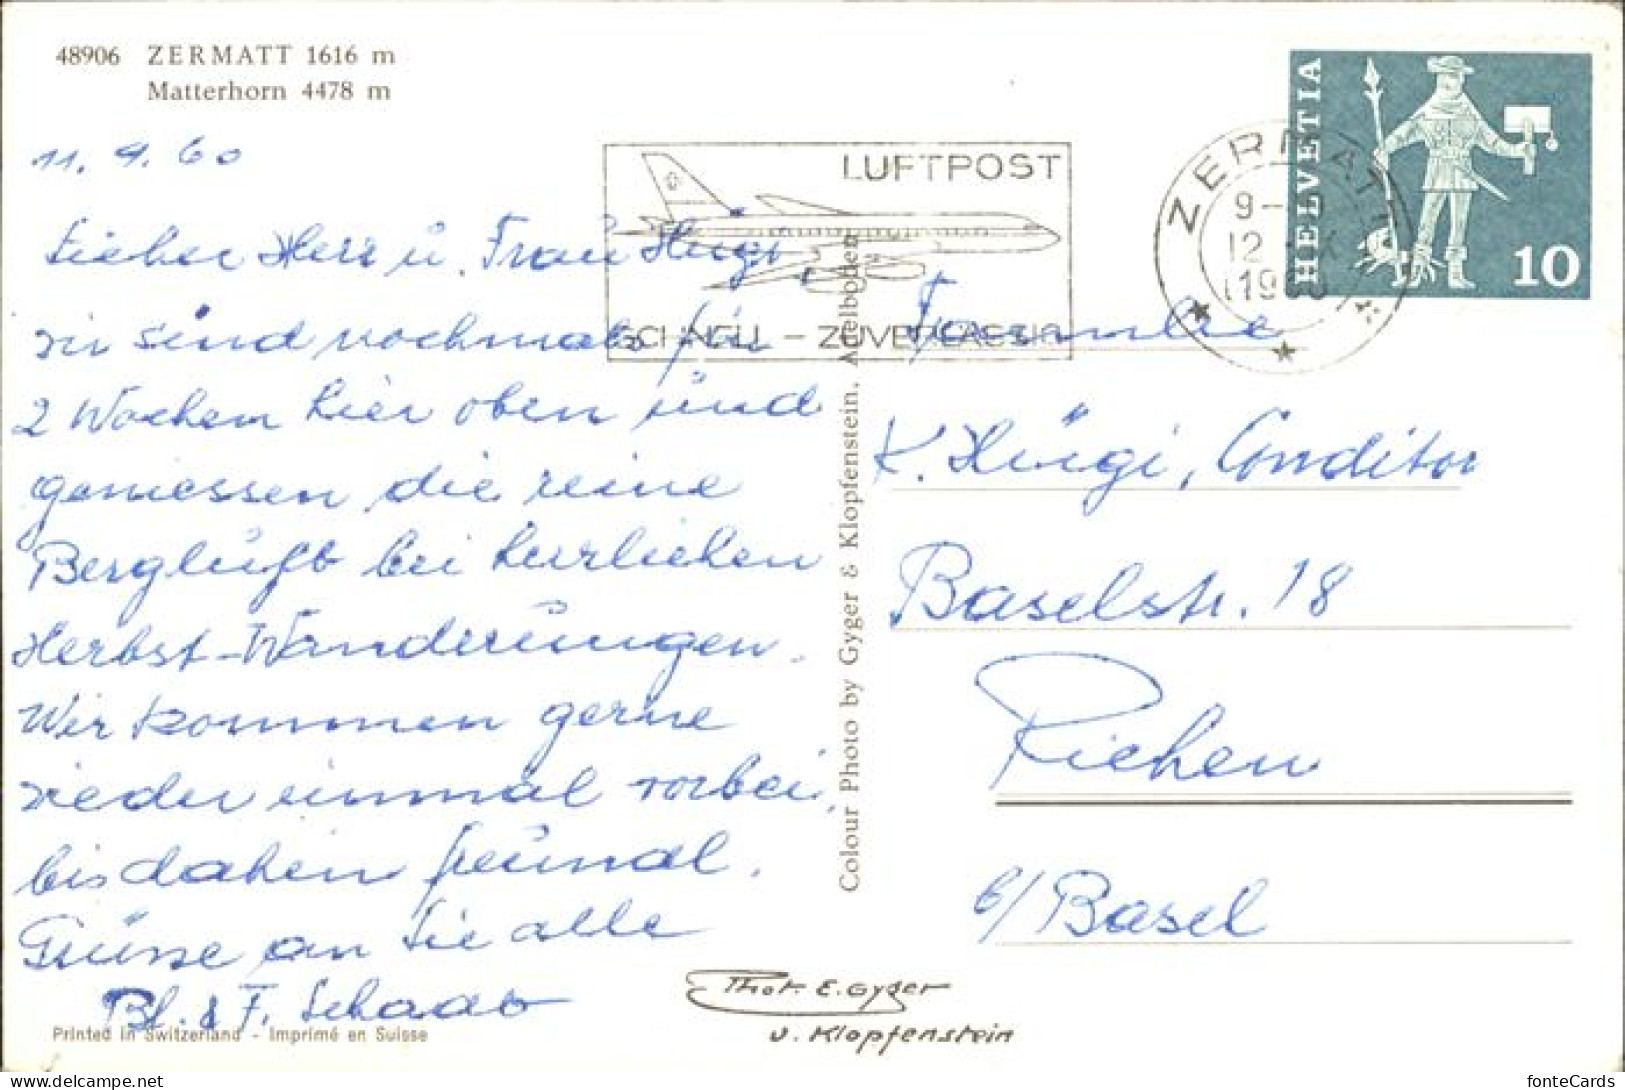 48906 ZERMATT 1616 m
Matterhorn 4478 m
11. 9. 60
Lieber Herr u. Frau Hügi,
wir sind nochmals für
2 Wochen hier oben und
geniessen die reine
Bergluft bei herrlichen
Herbst-Wanderungen.
Wir kommen gerne
wieder einmal vorbei,
bis dahin freundl.
Grüsse an Sie alle
F. Schaab
Printed in Switzerland - Imprimé en Suisse
LUFTPOST
SCHNELL - ZUVERLÄSSIG
ZERMATT
9-
12
19
HELVETIA
10
Colour Photo by Gyger & Klopfenstein, Adelboden
Familie
K. Hügi, Conditor
Baselstr. 18
Riehen
b/ Basel
Phot. E. Gyger
u. Klopfenstein
fonteCards
www.delcampe.net